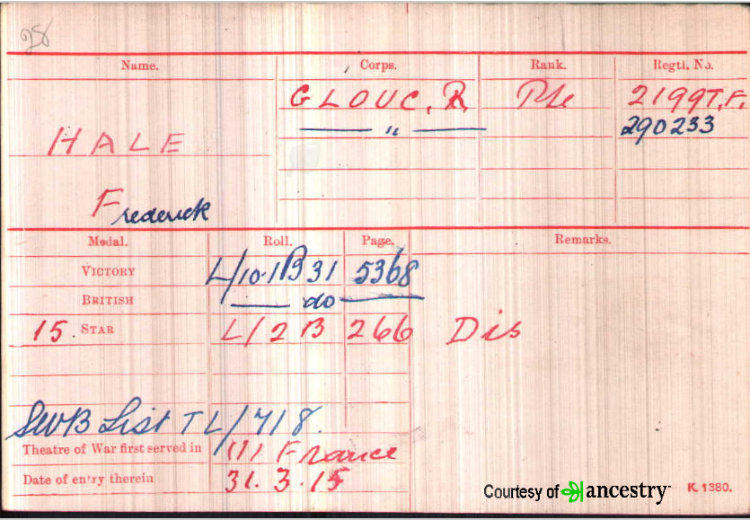 28
Name. Corps. Rank. Regtl. No.
GLOUC. R Pte 2199 T.F.
——— " ——— 290233
HALE
Frederick
Medal. Roll. Page. Remarks.
VICTORY L/10.1B31 5368
BRITISH — do —
15. STAR L/2B 266 Dis
SWB List TL/718.
Theatre of War first served in (1) France
Date of entry therein 31.3.15
Courtesy of ancestry K. 1380.